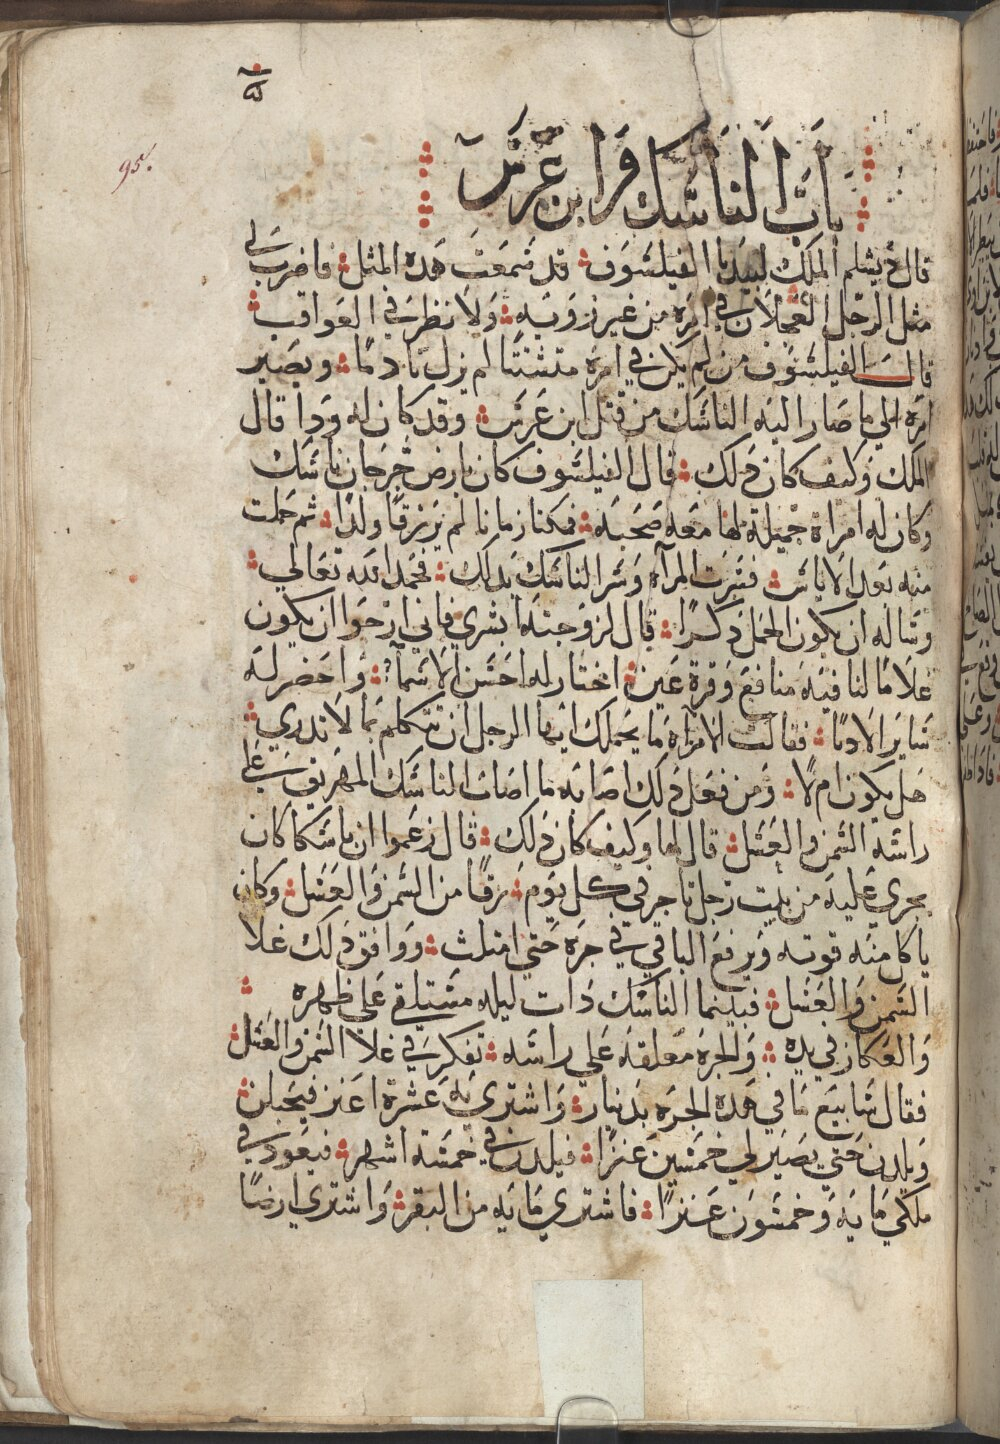 95.
باب الناسك وابن عرس
قال دبشلم الملك لبيدبا الفيلسوف قد سمعت هذه المثل فاضرب لي
مثل الرجل العجلان في امره من غير رويه ولا نظر في العواقب
قال الفيلسوف من لم يكن في امره متثبتا لم يزل نادما ويصير
امره الي ما صار اليه الناسك من قتل ابن عرس وقد كان له ودا قال
الملك وكيف كان ذلك قال الفيلسوف كان بارض جرجان ناسك
وكان له امراة جميلة لها معه صحبه فمكنا زمانا لم يرزقا ولدا ثم حملت
منه بعد الاياس فسرت المرآة وسر الناسك بذلك فحمد الله تعالي
وساله ان يكون الحمل ذكرا قال لزوجته ابشري فاني ارجوا ان يكون
غلاما لنا فيه منافع وقرة عين اختار له احسن الاسمآ واحضر له
ساير الادبا فقالت الامراة ما يحملك ايها الرجل ان تتكلم بما لا تدري
هل يكون ام لا ومن فعل ذلك اصابه ما اصاب الناسك المهريق علي
راسه السمن والعسل قال لها وكيف كان ذلك قال زعموا ان ناسكا كان
يجري عليه من بيت رجل تاجر في كل يوم رزقا من السمن والعسل وكان
ياكل منه قوته ويرفع الباقي في جره حتي امتلت ووافق ذلك غلا
السمن والعسل فبينما الناسك ذات ليله مستلقي علي ظهره
والعكاز في يده والجره معلقه علي راسه تفكر في غلا السمن والعسل
فقال سابيع ما في هذه الجره بدينار واشتري به عشرة اعنز فيحبلن
ويلدن حتي يصير لي خمسين عنزا فيلدن في خمسه اشهر فيعود في
ملكي مايه وخمسون عنزا فاشتري مايه من البقر واشتري ارضا